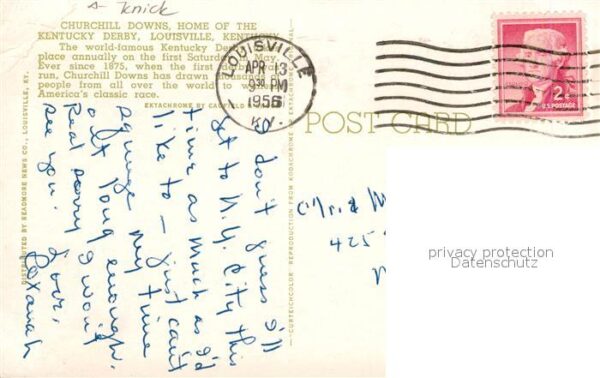 A Knick
CHURCHILL DOWNS, HOME OF THE
KENTUCKY DERBY, LOUISVILLE, KENTUCKY
The world-famous Kentucky Derby
place annually on the first Saturday May.
Ever since 1875, when the first derby was
run, Churchill Downs has drawn thousands of
people from all over the world to
America's classic race.
EKTACHROME BY CAUFIELD
DISTRIBUTED BY READMORE NEWS CO., LOUISVILLE, KY.
LOUISVILLE
APR 13
9 30 PM
1956
KY.
2¢
U.S. POSTAGE
POST CARD
"CURTEICHCOLOR" REPRODUCTION FROM KODACHROME OR EKTACHROME
I don't guess I'll
get to N.Y. City this
time as much as I'd
like to - just can't
squeeze my time
out long enough.
Real sorry I won't
see you. Love,
425
privacy protection
Datenschutz